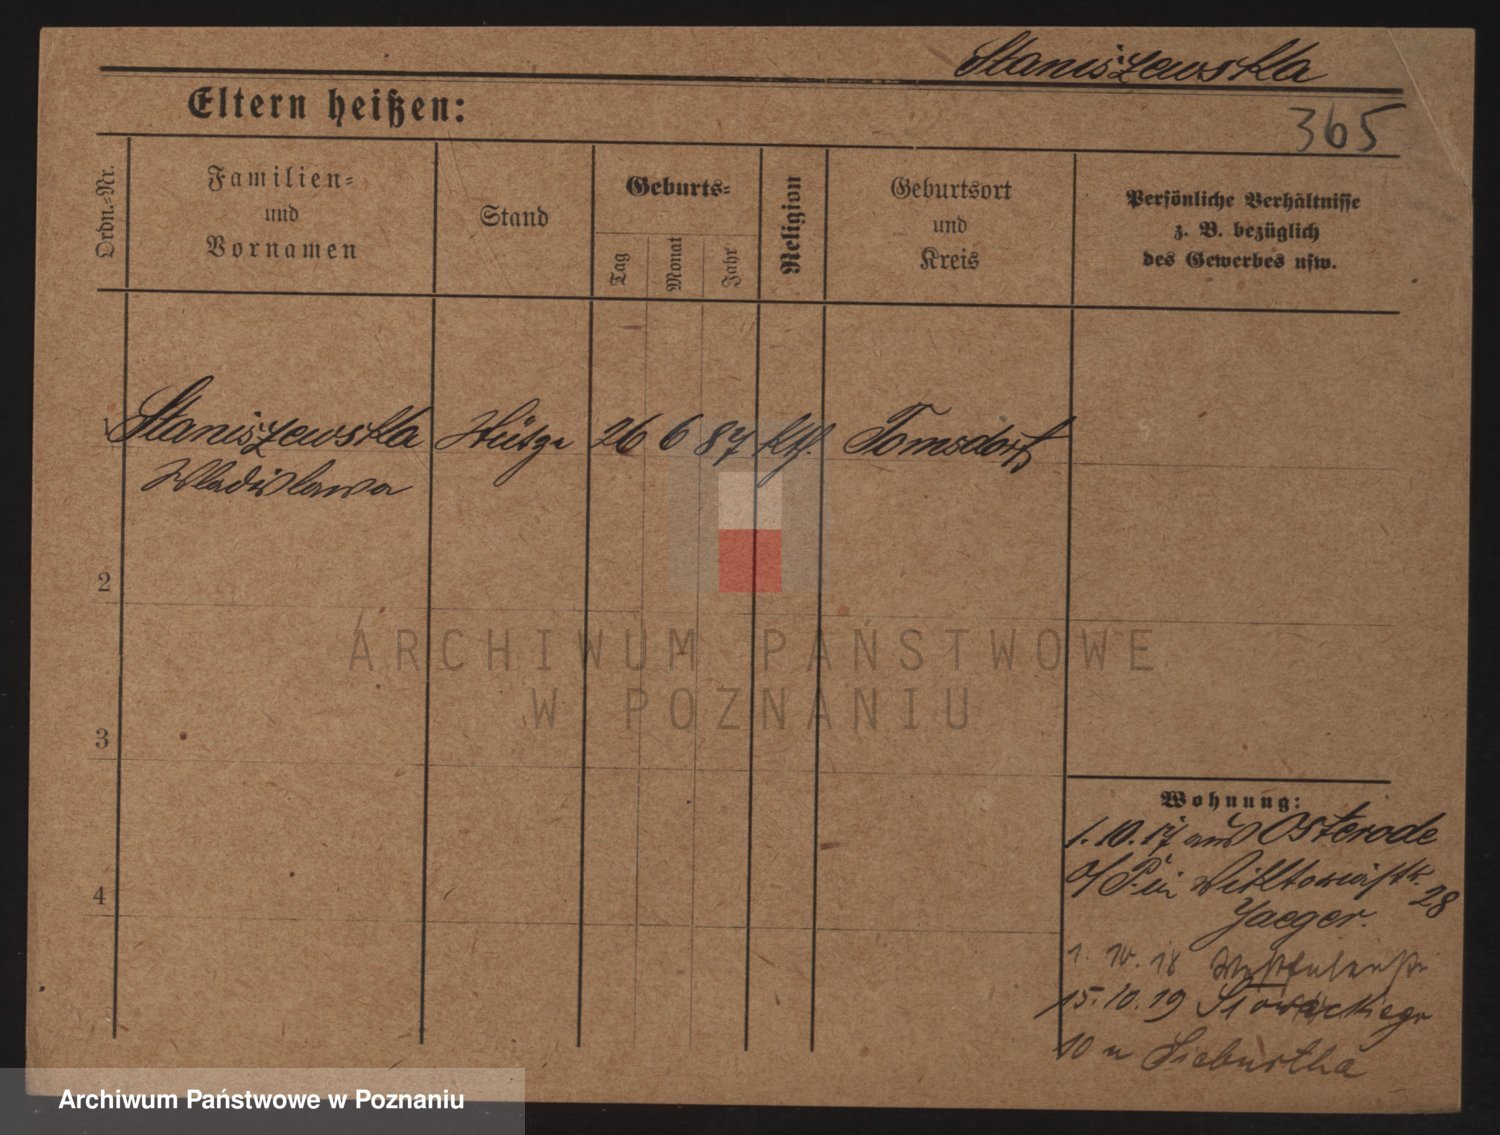 Staniszewska
Eltern heißen:
365
Ordn.-Nr.
Familien-
und
Vornamen
Stand
Geburts-
Tag
Monat
Jahr
Religion
Geburtsort
und
Kreis
Persönliche Verhältnisse
z. B. bezüglich
des Gewerbes usw.
1 Staniszewska Stütze 26 6 87 kth. Tomsdorf
Wladislawa
2
3
4
Wohnung:
1.10.17 aus Osterode
O/P. in Viktoriastr. 28
Jaeger.
1.10.18
15.10.19 Słowackiego
10 u Sieburtha
ARCHIWUM PAŃSTWOWE
W POZNANIU
Archiwum Państwowe w Poznaniu